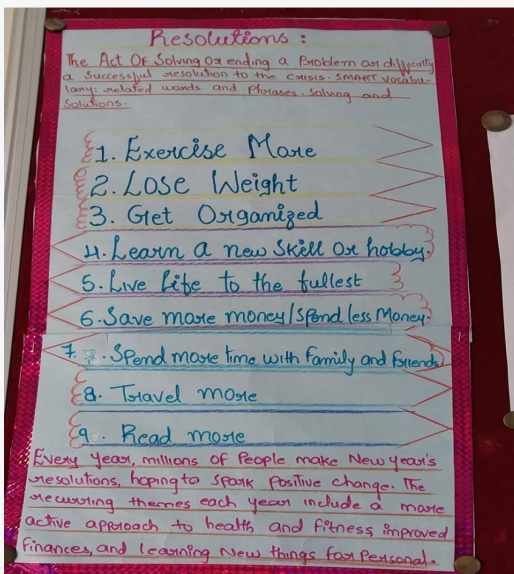 Resolutions :
The Act Of Solving Or ending a Problem or difficulty
a Successful resolution to the crisis. SMART vocabu-
lary: related words and Phrases. Solving and
Solutions.
1. Exercise More
2. Lose Weight
3. Get Organized
4. Learn a new Skill Or hobby.
5. Live Life to the fullest
6. Save more money/Spend less Money.
7. Spend more time with family and friends
8. Travel more
9. Read more
Every Year, millions of People make New year's
resolutions, hoping to spark positive change. The
recurring themes each year include a more
active approach to health and fitness, improved
finances, and learning New things for Personal.